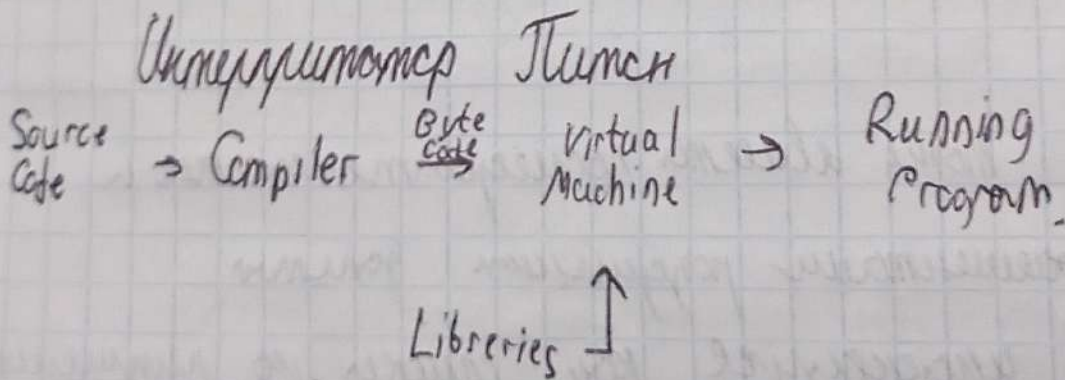 Интерпритатор Питон
Source Code → Compiler Byte Code → Virtual Machine → Running Program.
Libreries